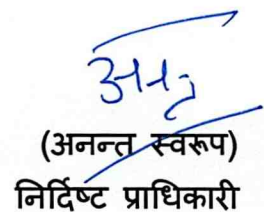 (अनन्त स्वरूप)
निर्दिष्ट प्राधिकारी